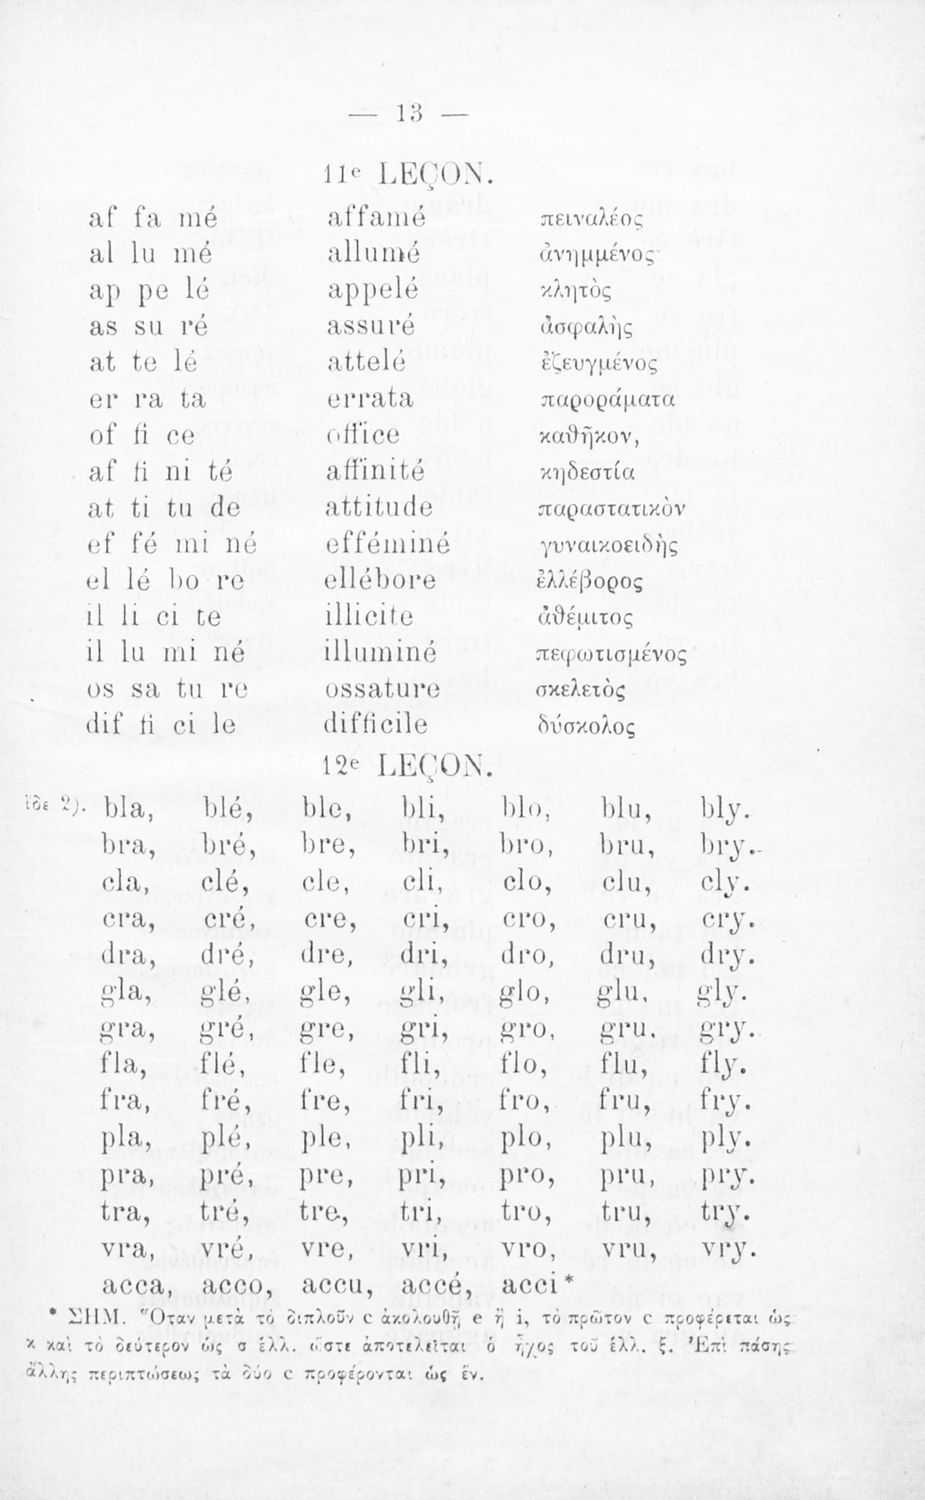 — 13 —
11e LEÇON.
af fa mé affamé πειναλέος
al lu mé allumé ἀνημμένος
ap pe lé appelé κλητὸς
as su ré assuré ἀσφαλὴς
at te lé attelé ἐζευγμένος
er ra ta errata παροράματα
of fi ce office καθῆκον,
af fi ni té affinité κηδεστία
at ti tu de attitude παραστατικὸν
ef fé mi né efféminé γυναικοειδὴς
el lé bo re ellébore ἐλλέβορος
il li ci te illicite ἀθέμιτος
il lu mi né illuminé πεφωτισμένος
os sa tu re ossature σκελετὸς
dif fi ci le difficile δύσκολος
12e LEÇON.
ἴδε 2). bla, blé, ble, bli, blo, blu, bly.
bra, bré, bre, bri, bro, bru, bry.
cla, clé, cle, cli, clo, clu, cly.
cra, cré, cre, cri, cro, cru, cry.
dra, dré, dre, dri, dro, dru, dry.
gla, glé, gle, gli, glo, glu, gly.
gra, gré, gre, gri, gro, gru, gry.
fla, flé, fle, fli, flo, flu, fly.
fra, fré, fre, fri, fro, fru, fry.
pla, plé, ple, pli, plo, plu, ply.
pra, pré, pre, pri, pro, pru, pry.
tra, tré, tre, tri, tro, tru, try.
vra, vré, vre, vri, vro, vru, vry.
acca, acco, accu, accé, acci*
* ΣΗΜ. Ὅταν μετὰ τὸ διπλοῦν c ἀκολουθῇ e ἢ i, τὸ πρῶτον c προφέρεται ὡς
κ καὶ τὸ δεύτερον ὡς σ ἑλλ. ὥστε ἀποτελεῖται ὁ ἦχος τοῦ ἑλλ. ξ. Ἐπὶ πάσης
ἄλλης περιπτώσεως τὰ δύο c προφέρονται ὡς ἕν.